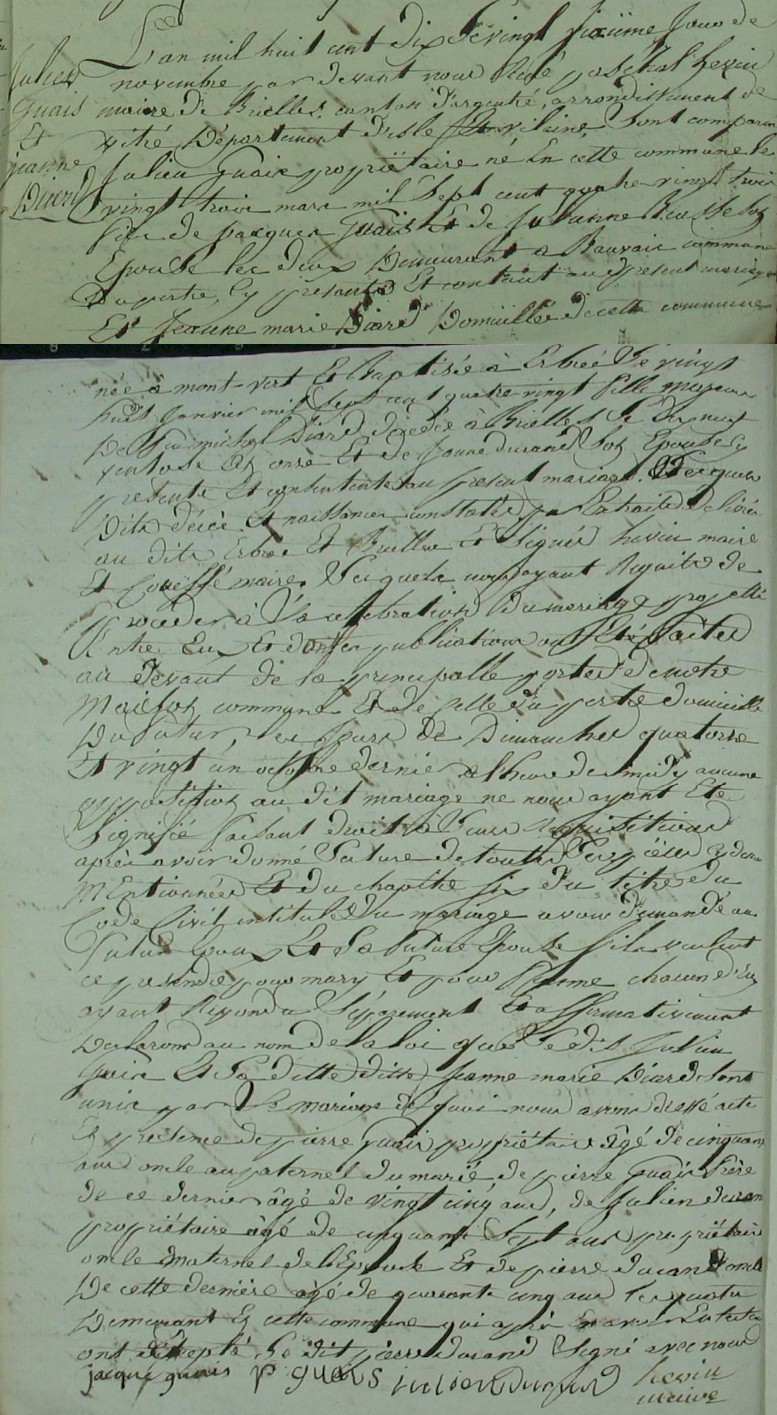 Julien
Guais
Et
jeanne
Diard
L'an mil huit cent dix Le vingt sixiême Jour de
novembre par devant nous René paschal hevin
maire de Brielles, canton d'argentré, arrondissement de
vitré, Département d'isle Et vilaine, Sont comparu
Julien Guais propriétaire né En cette commune le
vingt trois mars mil Sept cent quatre vingt trois
fils de jacques Guais Et de Julienne Son
Epouse les deux Demeurant a Bauvais commune
Du pertre, Cy présents Et consentant au présent mariage
Et Jeanne marie Diard Domiciliée de cette commune
née à mont-vert Et Baptisée à Erbrée Le vingt
huit Janvier mil Sept cent quatre vingt fille majeure
De feu michel Diard décédé à Brielles Le dix neuf
ventose En onze Et de Jeanne durand Son Epouse Cy
présente Et consentente au présent mariage. Les quels
Dits décès Et naissances constatés par Extraits délivrés
au dits Erbrée Et Brielles Et Signés hevin maire
Et Coueffé maire. Lesquels nous ayant Requits de
proceder à La celebration Du mariage projetté
Entre Eux Et dont les publications ont Eté faites
au devant de la principalle porte de notre
Maison commune Et de celle du pertre domicille
Du futur, les jours de Dimanches quatorze
Et vingt un octobre dernier a l'heure de midy aucune
oppositions au dit mariage ne nous ayant Eté
Signifié faisant droit à Leurs Requisitions
après avoir donné Lecture de toutes Les pièces cy dessus
Mentionnées Et du chapitre six du titre du
Code Civil intitulé Du mariage avons demandé au
Futur Epoux Et à La future Epouse s'ils veulent
ce prendre pour mary Et pour femme chacun d'eux
ayant Répondu Séparement Et affirmativement
Declarons au nom de la loi que Le dit Julien
Guais Et La ditte ditte Jeanne marie Diard Sont
unis par Le mariage de quoi nous avons dressé acte
En présence de pierre Guais propriétaire âgé de cinquante
ans oncle au paternel du marié de pierre Guais frère
de ce dernier âgé de vingt cinq ans, de Julien durand
propriétaire âgé de cinquante Sept ans propriétaire
oncle maternel de l'Epouse Et de pierre durand oncle
De cette dernière âgé de quarante cinq ans Les quatre
Demeurant En cette commune qui après En avoir Lecture
ont Excepté Le dit pierre durand Signé avec nous
jacque guais P guais julien durand hevin
maire